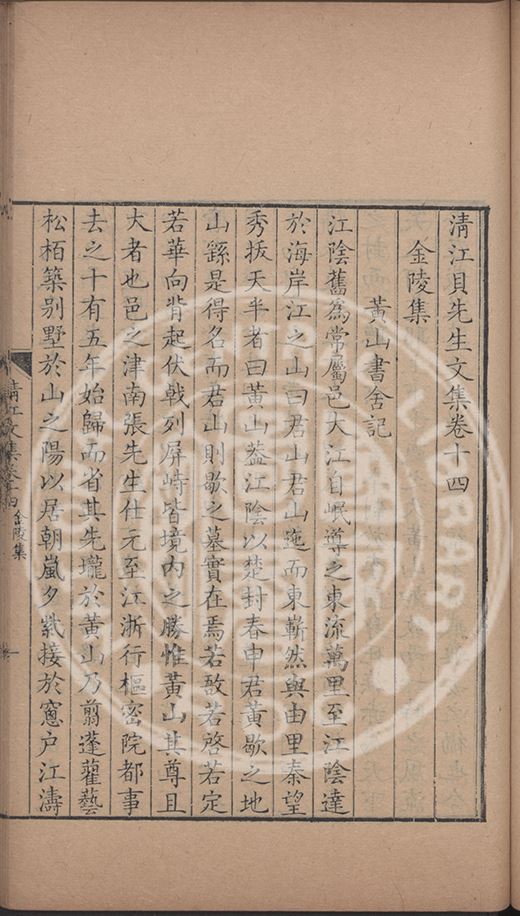 清江貝先生文集卷十四
金陵集
黃山書舍記
江陰舊為常屬邑大江自岷導之東流萬里至江陰達
於海岸江之山曰君山君山迤而東嶄然與由里秦望
秀拔天半者曰黃山葢江陰以楚封春申君黃歇之地
山繇是得名而君山則歇之墓實在焉若敔若啓若定
若華向背起伏戟列屏峙皆境內之勝惟黃山其尊且
大者也邑之津南張先生仕元至江浙行樞密院都事
去之十有五年始歸而省其先壠於黃山乃翦蓬藋藝
松栢築别墅於山之陽以居朝嵐夕紫接於窻户江濤
清江文集卷十四 金陵集 一